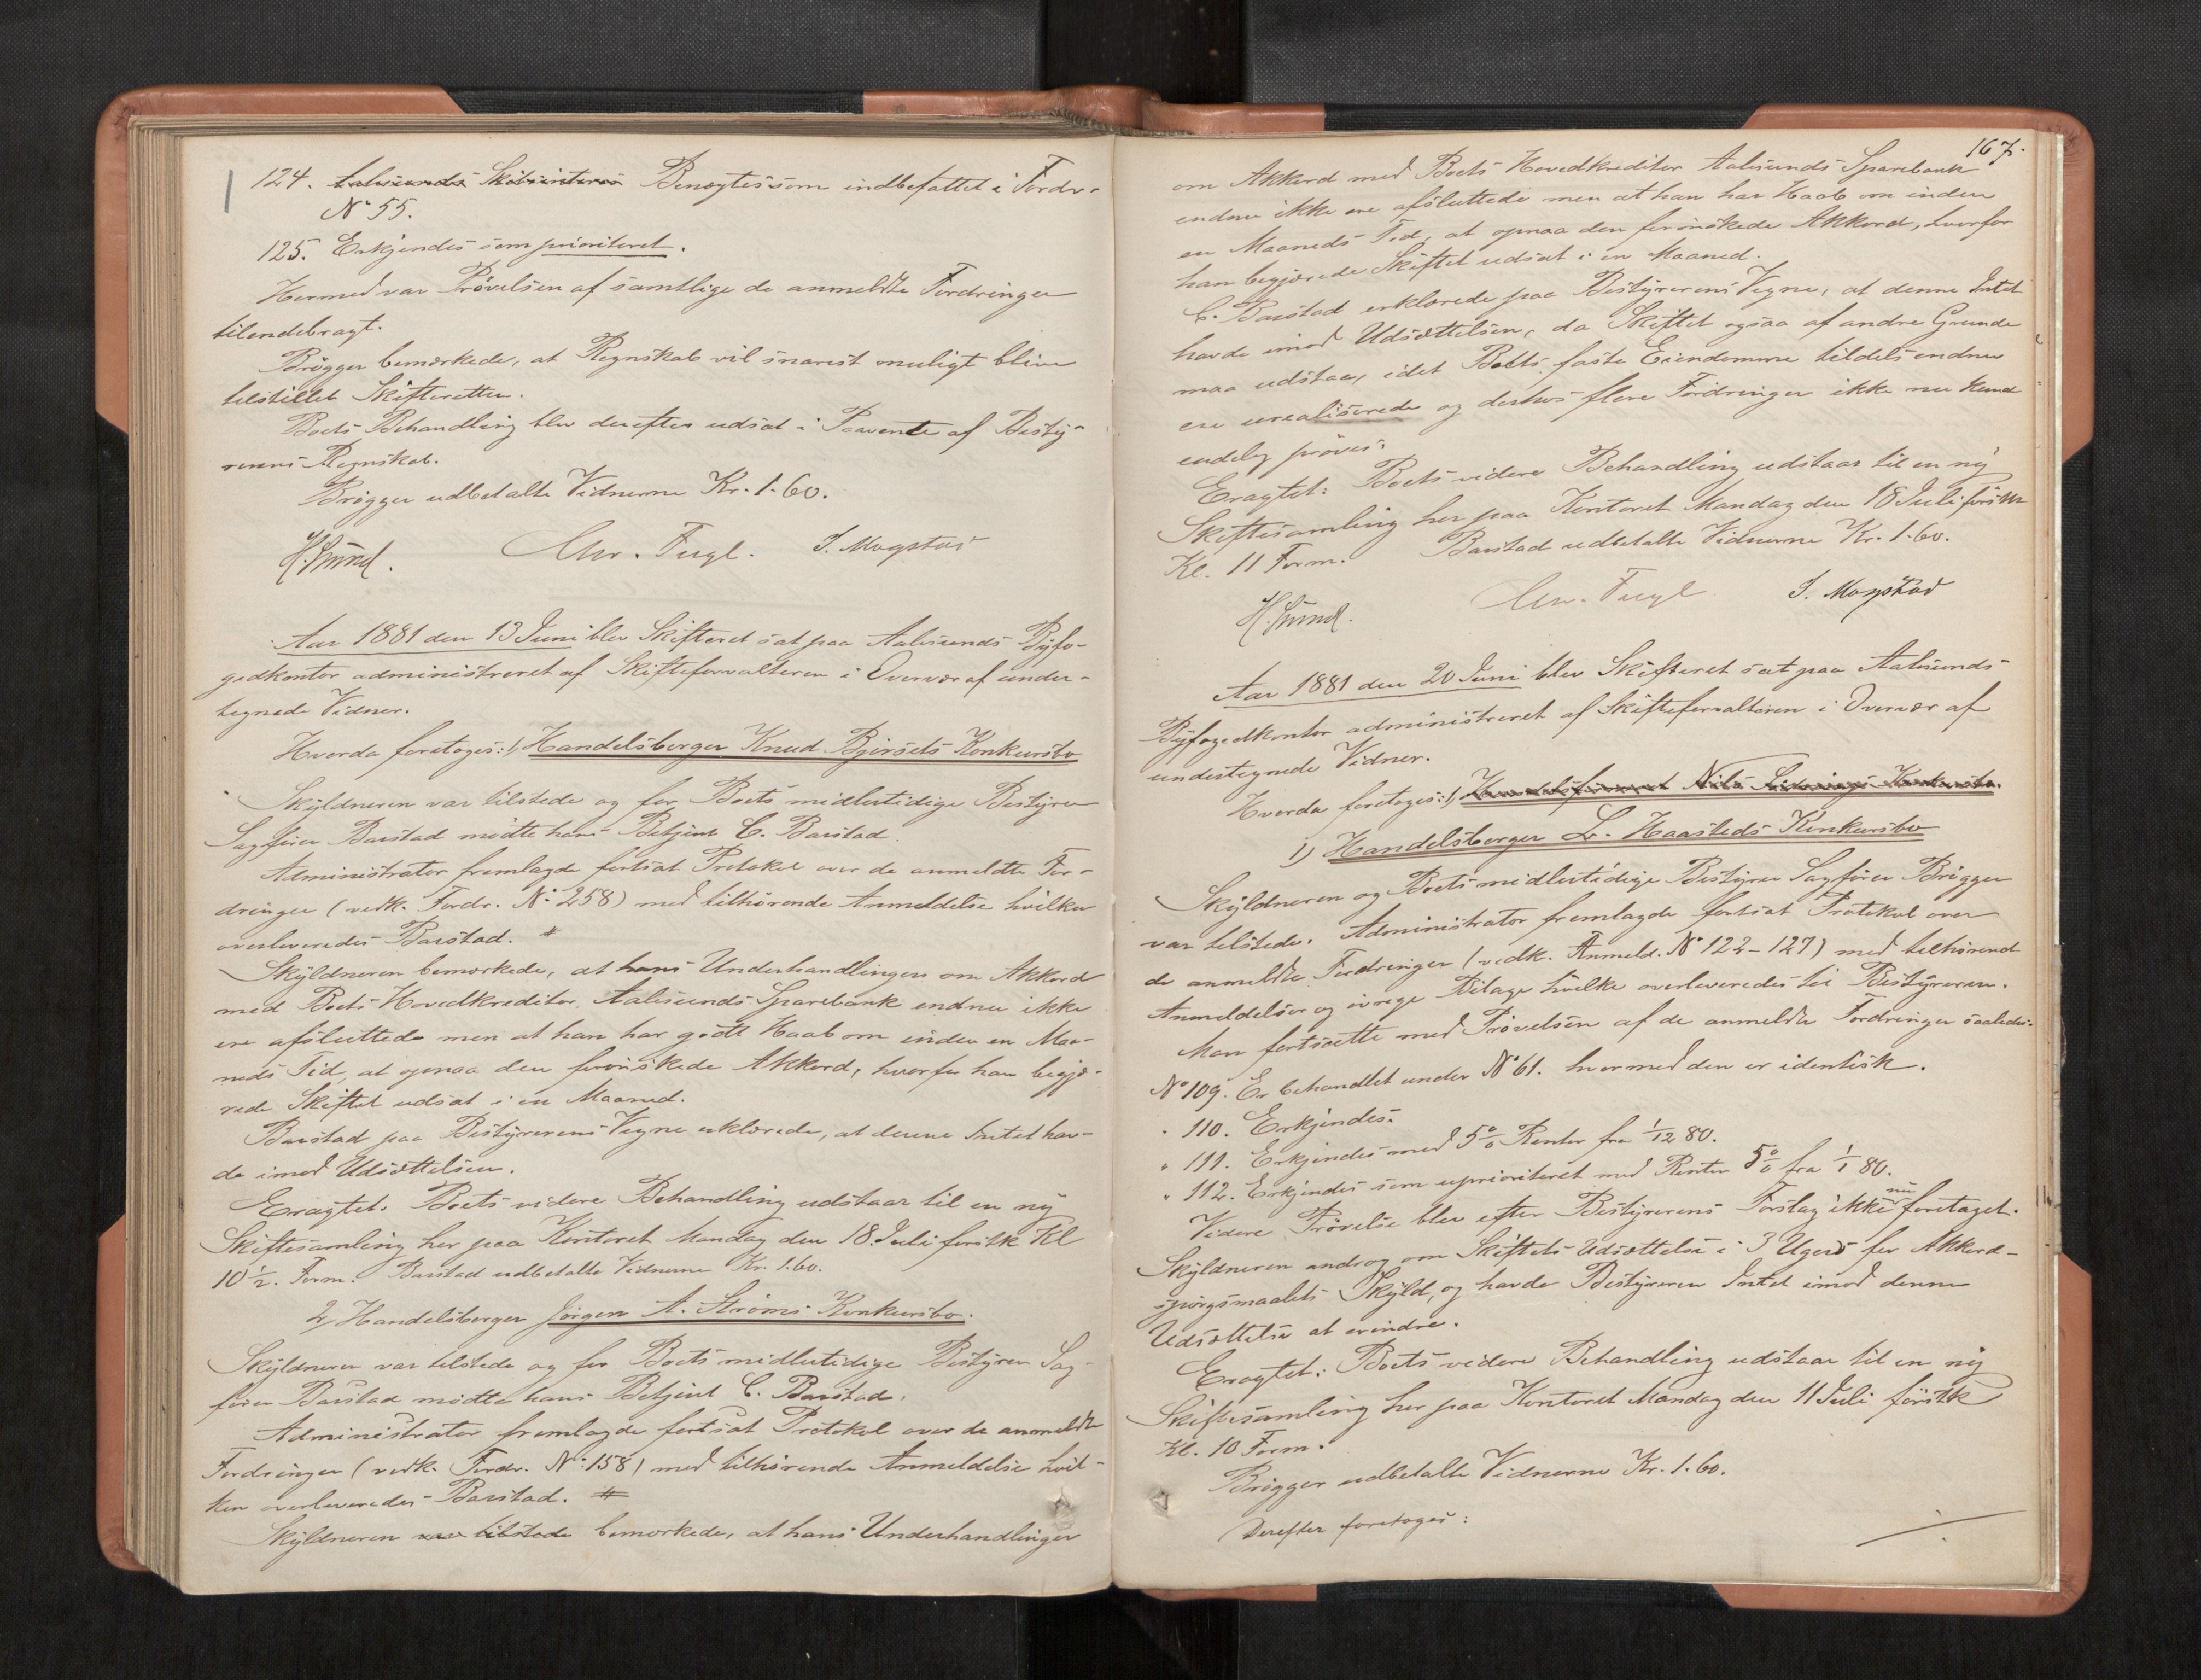 124. Aalesunds Skibsinteres Benægtes som indbefattet i Fordr.
No 55.
125. Erkjendes som prioriteret.
Hermed var Prøvelsen af samtlige de anmeldte Fordringer
tilendebragt.
Brøgger bemærkede, at Regnskab vil snarest muligt blive
tilstillet Skifteretten.
Boets Behandling blev derefter udsat i Paavente af Besty-
rerens Regnskab.
Brøgger udbetalte Vidnerne Kr. 1.60.
Chr. Fugl. J. Magstad
Aar 1881 den 13 Juni blev Skifteret sat paa Aalesunds Byfo-
gedkontor administreret af Skifteforvalteren i Overvær af under-
tegnede Vidner.
Hvorda foretoges: 1, Handelsborger Knud Bjørsets Konkursbo
Skyldneren var tilstede og for Boets midlertidige Bestyrer
Sagfører Barstad mødte hans Betjent C. Barstad.
Administrator fremlagde fortsat Protokol over de anmeldte For-
dringer (vedk. Fordr. No 258) med tilhørende Anmeldelse hvilken
overleveredes Barstad. #
Skyldneren bemærkede, at hans Underhandlinger om Akkord
med Boets Hovedkreditor Aalesunds Sparebank endnu ikke
ere afsluttede men at han har godt Haab om inden en Maa-
neds Tid, at opnaa den forønskede Akkord, hvorfor han begjæ-
rede Skiftet udsat i en Maaned.
Barstad paa Bestyrerens Vegne erklærede, at denne Intet hav-
de imod Udsættelsen.
Eragtet. Boets videre Behandling udstaar til en ny
Skiftesamling her paa Kontoret Mandag den 18. Juli førstk Kl
10 1/2. Form. Barstad udbetalte Vidnerne Kr. 1.60.
2, Handelsborger Jørgen A. Strøms Konkursbo.
Skyldneren var tilstede og for Boets midlertidige Bestyrer Sag-
fører Barstad mødte hans Betjent C. Barstad.
Administrator fremlagde fortsat Protokol over de anmeldte
Fordringer (vedk. Fordr. No 158) med tilhørende Anmeldelse hvil-
ken overleveredes Barstad. #
Skyldneren var tilstede bemærkede, at hans Underhandlinger
167.
om Akkord med Boets Hovedkreditor Aalesunds Sparebank
endnu ikke ere afsluttede men at han har Haab om inden
en Maaneds Tid, at opnaa den forønskede Akkord, hvorfor
han begjærede Skiftet udsat i en Maaned.
C. Barstad erklærede paa Bestyrerens Vegne, at denne Intet
havde imod Udsættelsen, da Skiftet ogsaa af andre Grunde
maa udstaa, idet Boets faste Eiendomme tildels endnu
ere urealiserede og desuden flere Fordringer ikke nu kunde
endelig prøves.
Eragtet: Boets videre Behandling udstaar til en ny
Skiftesamling her paa Kontoret Mandag den 18 Juli førstk
Kl. 11 Form. Barstad udbetalte Vidnerne Kr. 1.60.
Chr. Fugl J. Magstad
Aar 1881 den 20 Juni blev Skifteret sat paa Aalesunds
Byfogedkontor administreret af Skifteforvalteren i Overvær af
undertegnede Vidner.
Hvorda foretoges: 1, Handelsfirmaet Nils Konkursbo.
1, Handelsborger L. Haasteds Konkursbo
Skyldneren og Boets midlertidige Bestyrer Sagfører Brøgger
var tilstede. Administrator fremlagde fortsat Protokol over
de anmeldte Fordringer (vedk. Anmeld. No 122-127) med tilhørende
Anmeldelser og øvrige Bilage hvilke overleveredes til Bestyreren.
Man fortsatte med Prøvelsen af de anmeldte Fordringer saaledes:
No 109. Er behandlet under No 61. hvormed den er identisk.
" 110. Erkjendes.
" 111. Erkjendes med 5 % Renter fra 1/12 80.
" 112. Erkjendes som uprioriteret med Renter 5 % fra 1/1 80.
Videre Prøvelse blev efter Bestyrerens Forslag ikke nu foretaget.
Skyldneren androg om Skiftets Udsættelse i 3 Uger for Akkord-
spørgsmaalets Skyld, og havde Bestyreren Intet imod denne
Udsættelse at erindre.
Eragtet: Boets videre Behandling udstaar til en ny
Skiftesamling her paa Kontoret Mandag den 11 Juli førstk
Kl. 10 Form.
Brøgger udbetalte Vidnerne Kr. 1.60.
Derefter foretoges: